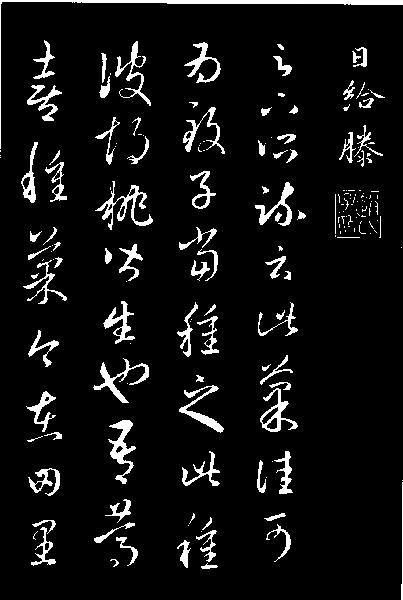 日給滕
足下所疏云此菓佳可
為致子當種之此種
彼胡桃皆生也吾篤
喜種菓今在田里